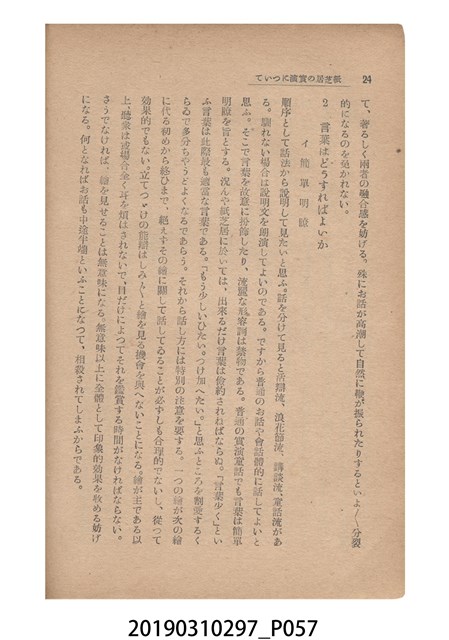 24
紙芝居の實演について
て、著るしく兩者の融合感を妨げる。殊にお話が高潮して自然に鞭が振られたりするといよ〳〵分裂
的になるのを免かれない。
2 言葉はどうすればよいか
イ 簡單明瞭
順序として話法から說明して見たいと思ふ。話を分けて見ると活辯流、浪花節流、講談流、童話流があ
る。馴れない場合は說明文を朗演してよいのである。ですから普通のお話や會話體的に話してよいと
思ふ。そこで言葉を故意に粉飾したり、流麗な形容詞は禁物である。普通の實演童話でも言葉は簡單
明瞭を旨とする。況んや紙芝居に於いては、出來るだけ言葉は儉約されねばならぬ。「言葉少く」とい
ふ言葉は此際最も適當な言葉である。「もう少しいひたい。つけ加へたい。」と思ふところを割愛するく
らゐで多分ちやうどよくなるであらう。それから話し方には特別の注意を要する。一つの繪が次の繪
に代る初めから終ひまで、絕えずその繪に關して話してゐることが必ずしも合理的でないし、從つて
効果的でもない。立てつゞけの饒舌はしみ〴〵と繪を見る機會を與へないことになる。繪が主である以
上、聽衆は或場合全く耳を煩はされないで、目だけによつてそれを鑑賞する時間がなければならない。
さうでなければ、繪を見せることは無意味になる。無意味以上に全體として印象的効果を收める妨げ
になる。何となればお話も中途半端といふことになつて、相殺されてしまふからである。
20190310297_P057